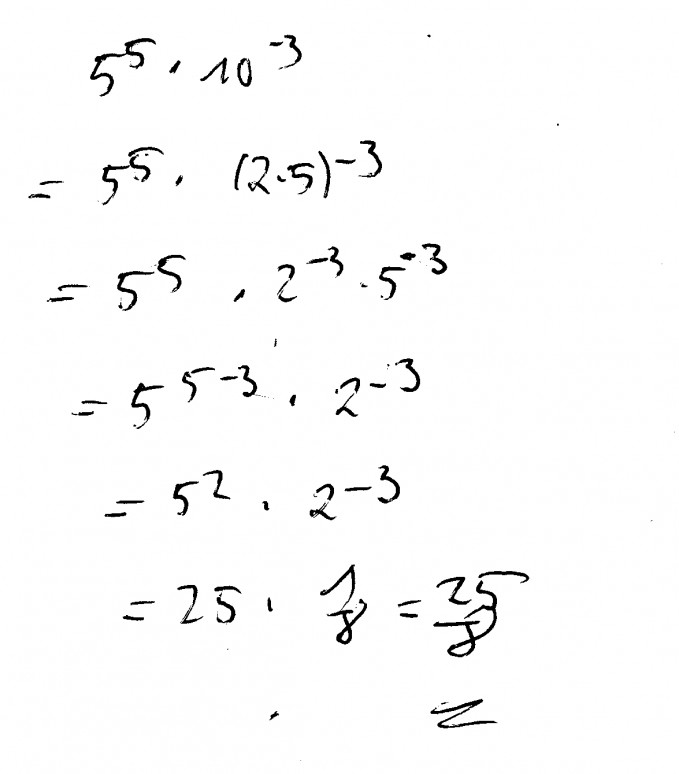 5⁵ · 10⁻³
= 5⁵ · (2·5)⁻³
= 5⁵ · 2⁻³ · 5⁻³
= 5⁵⁻³ · 2⁻³
= 5² · 2⁻³
= 25 · 1/8 = 25/8